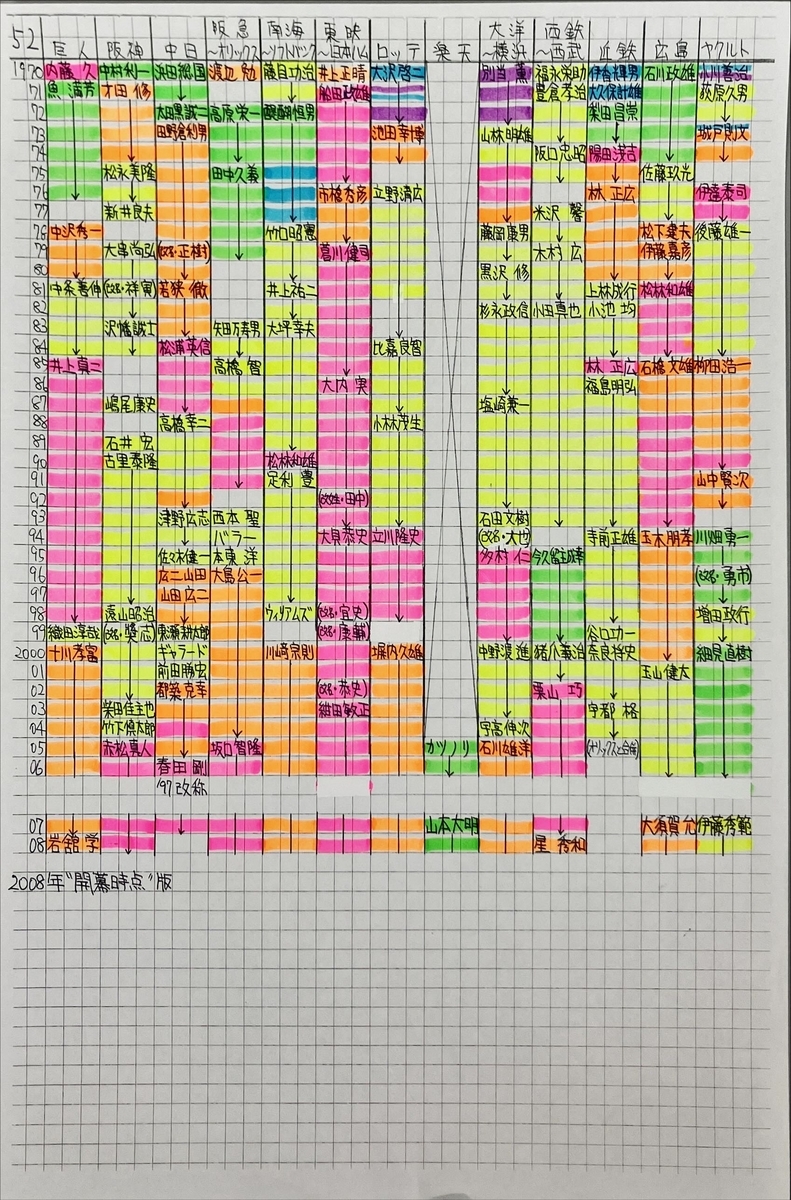 52 巨人 阪神 中日 阪急〜オリックス 南海〜ソフトバンク 東映〜日本ハム ロッテ 楽天 大洋〜横浜 西鉄〜西武 近鉄 広島 ヤクルト
1970 内藤 久 中村利一 浜田総国 渡辺 勉 藤目功治 井上正晴 大沢啓二 別当 薫 福永栄助 伊香輝男 石川政雄 小川善治
71 魚 満芳 才田 修 船田政雄 豊倉孝治 大久保計雄 萩原久男
72 太田黒誠二 高原栄一 醍醐恒男 梨田昌崇
73 田野倉利男 池田幸博 山林明雄 城戸則文
74 阪口忠昭 陽田洋吉
75 松永美隆 田中久義 佐藤玖光
76 市橋秀彦 立野清広 林 正広 伊達泰司
77 新井良夫 米沢 馨
78 中沢秀一 竹口昭憲 藤岡康男 松下建夫 後藤雄一
79 大串尚弘 (改名・正樹) 菖川健司 木村 広 伊藤嘉彦
80 黒沢 修
81 中条善伸 (改名・祥寛) 若狭 徹 井上祐二 上林成行 松林和雄
82 杉永政信 小田真也 小池 均
83 沢幡誠士 矢田万寿男 大坪幸夫
84 松浦英信 比嘉良智
85 井上真二 高橋 智 林 正広 石橋文雄 柳田浩一
86 大内 実 福島明弘
87 嶋尾康史 塩崎兼一
88 高橋幸二 小林茂生
89 石井 宏
90 古里泰隆 松林和雄
91 定利 豊 山中賢次
92 (改姓・田中)
93 津野広志 西本 聖 石田文樹
94 バラー 大貝恭史 立川隆史 (改名・大也) 寺前正雄 玉木朋孝 川畑勇一
95 佐々木健一 本東 洋 多村 仁 今久留主成幸
96 広二山田 大島公一 (改名・勇市)
97 山田広二
98 遠山昭治 ウィリアムズ (改名・宜史) 増田政行
99 織田淳哉 (改名・奬志) 東瀬耕太郎 (改名・康輔) 谷口功一
2000 十川孝富 ギャラード 川崎宗則 堀内久雄 中野渡 進 猪爪義治 奈良将史 細見直樹
01 前田勝宏 玉山健太
02 都築克幸 (改名・恭史) 栗山 巧
03 柴田佳主也 紺田敏正 宇都 格
04 竹下慎太郎 宇高伸次
05 赤松真人 坂口智隆 カツノリ 石川雄洋 (オリックスと合併)
06 春田 剛
'97改称
07 山本大明 大須賀允 伊藤秀範
08 岩舘 学 星 秀和
2008年"開幕時点"版